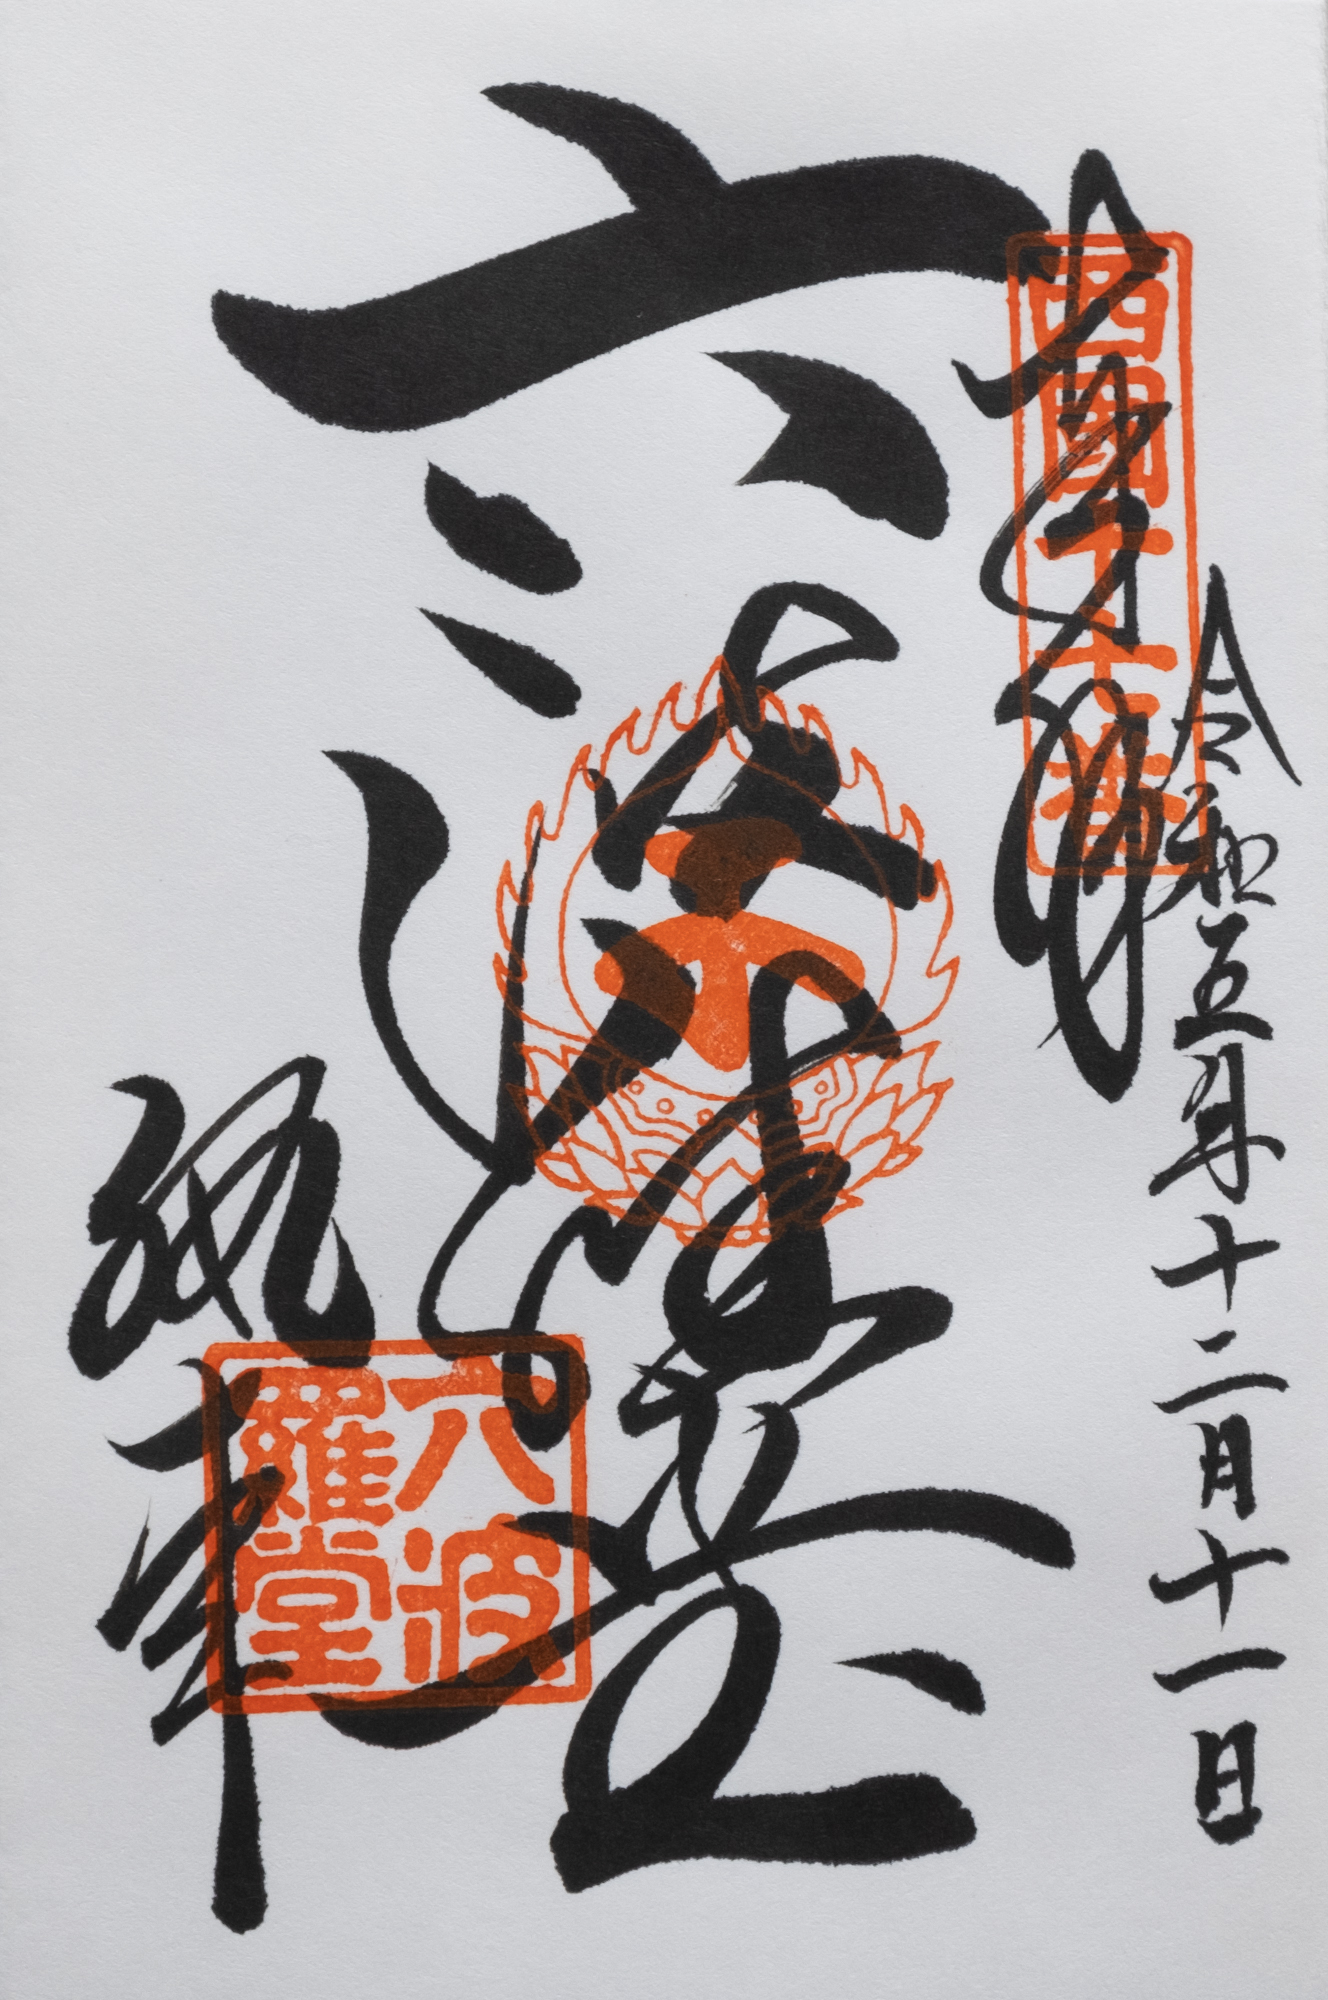 西國十七番
令和五年十二月十一日
六波羅堂
六波
羅堂